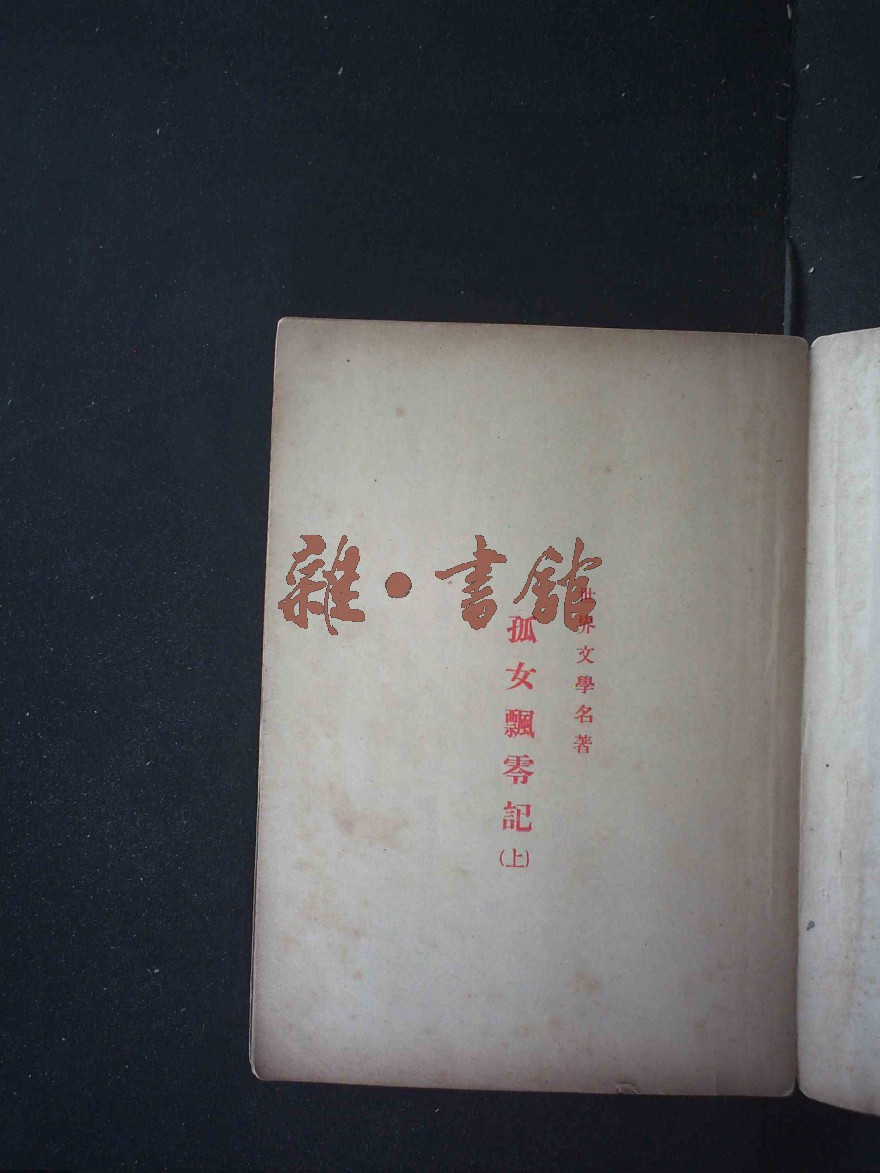 雜·書館
世界文學名著
孤女飄零記
(上)